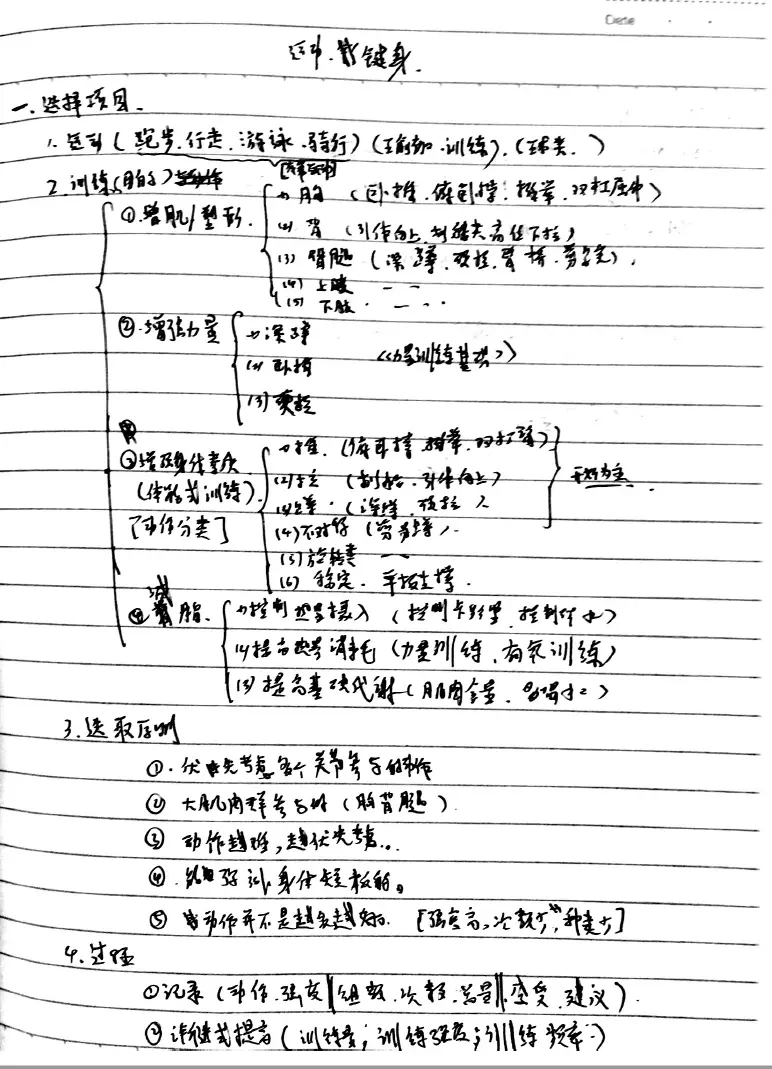 Date
运动、健身
一、选择项目
1. 运动(跑步、行走、游泳、骑行)(瑜伽、训练)、(球类、)
2. 训练(目的)
① 增肌/塑形
(1) 胸 (卧推、俯卧撑、推举、双杠屈伸)
(2) 背 (引体向上、划船、高位下拉)
(3) 臀腿 (深蹲、硬拉、臀桥、)
(4) 上肢
(5) 下肢
② 增强力量
(1) 深蹲
(2) 卧推 《力量训练基础》
(3) 硬拉
③ 增强身体素质
(体能式训练)
[动作分类]
(1) 推 (俯卧撑、推举、双杠)
(2) 拉 (划船、引体向上)
(3) 蹲 (深蹲、硬拉) 为主
(4) 不对称 (剪蹲)
(5) 旋转类
(6) 稳定、平板支撑
④ 减脂
(1) 控制热量摄入 (控制卡路里、控制)
(2) 提高热量消耗 (力量训练、有氧训练)
(3) 提高基础代谢 (肌肉含量、)
3. 选取原则
①. 优先考虑多个关节参与的动作
② 大肌肉群参与时 (胸背腿)
③ 动作越难,越优先考虑..
④. 身体短板的。
⑤ 动作并不是越多越好的. [强度高、次数少、种类少]
4. 过程
① 记录 (动作、强度、组数、次数、总量、感受、建议)
② 渐进式提高 (训练量;训练强度;训练频率)